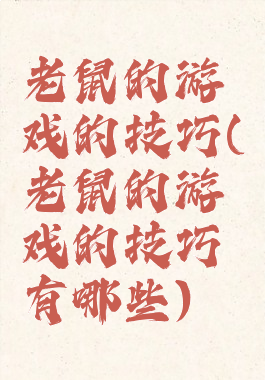 老鼠的游
戏的技巧(
老鼠的游
戏的技巧
有哪些)